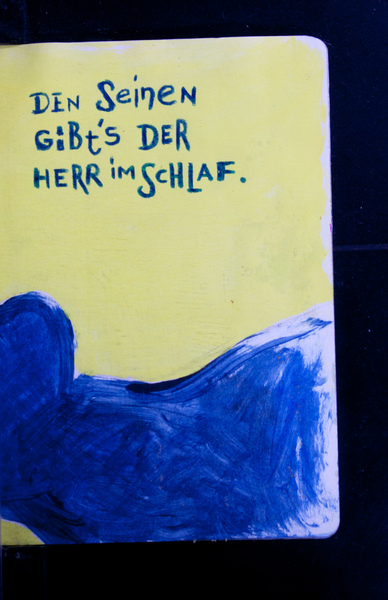 DEN SEiNEN
GiBt'S DER
HERR iM SCHLAF.